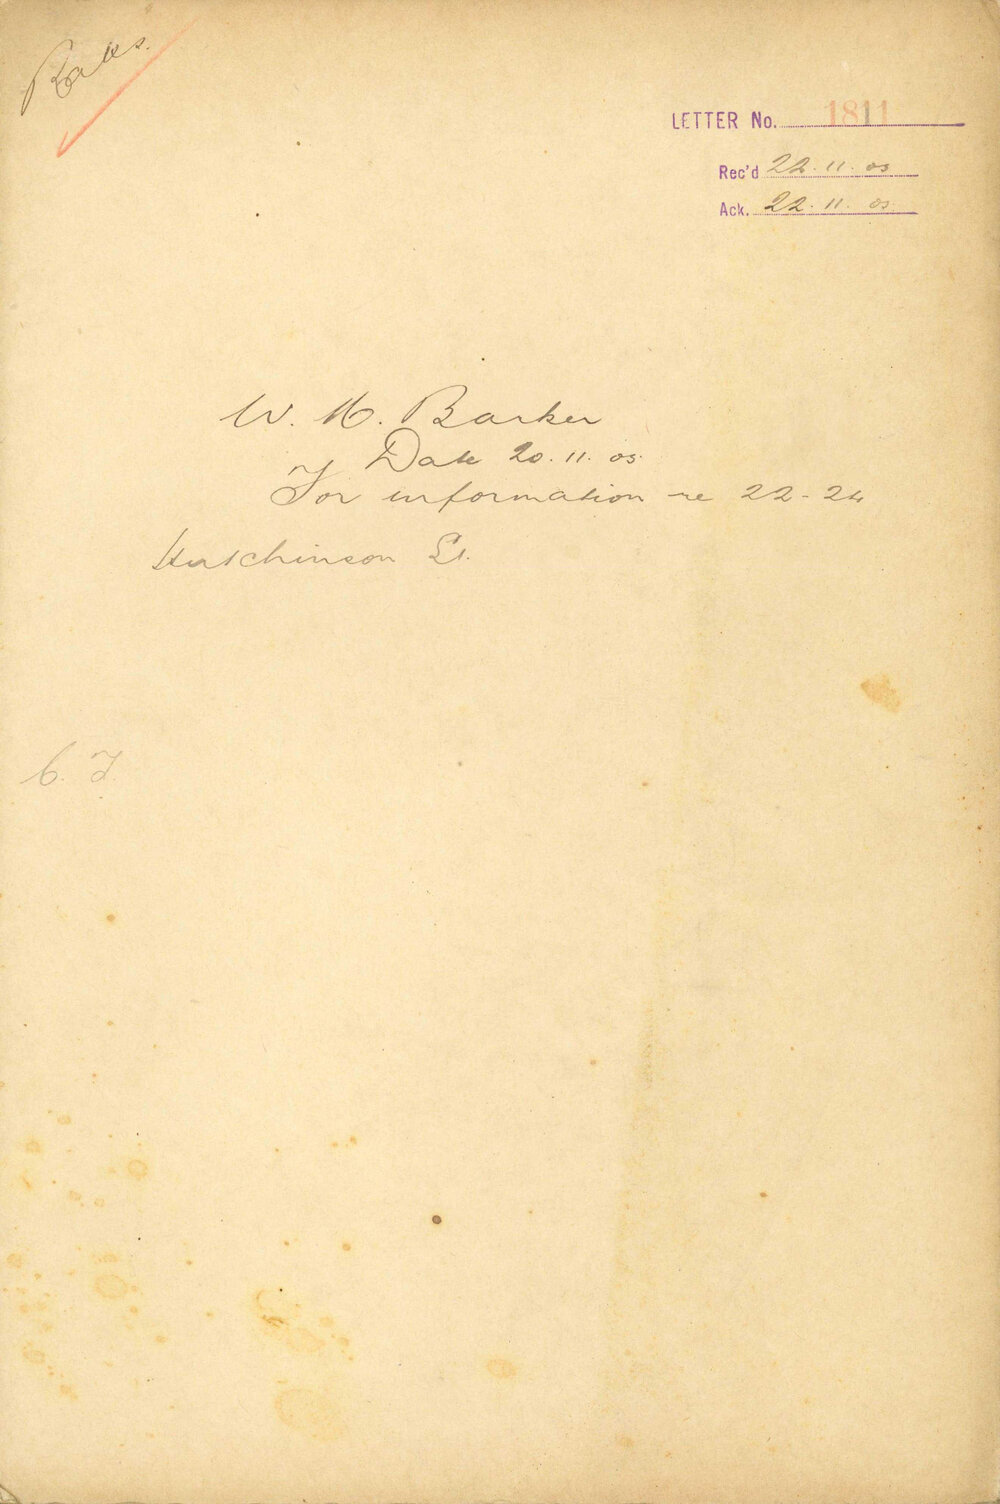 Rates.
LETTER No. 1811
Rec'd 22. 11. 05
Ack. 22. 11. 05
W. H. Barker
Date 20. 11. 05.
For information re 22-24
Hutchinson St.
C. T.